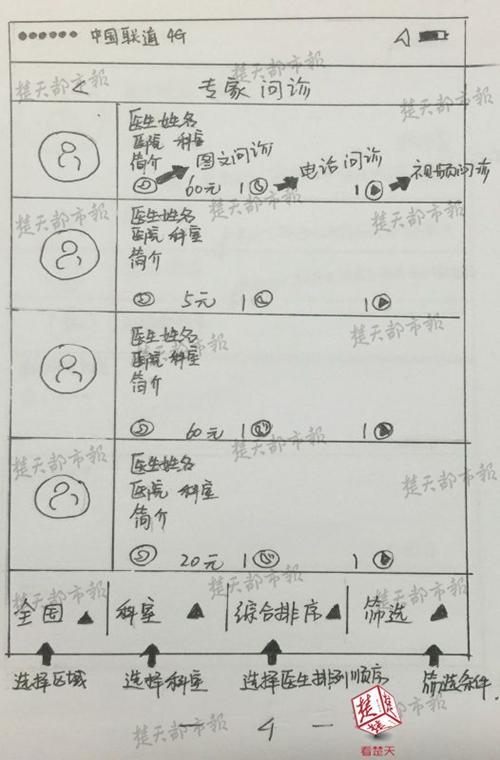 中国联通 4G
专家问诊
医生姓名
医院 科室
简介
图文问诊 电话问诊 视频问诊
60元 1 1
医生姓名
医院 科室
简介
5元 1 1
医生姓名
医院 科室
简介
60元 1 1
医生姓名
医院 科室
简介
20元 1 1
全国 科室 综合排序 筛选
选择区域 选择科室 选择医生排列顺序 筛选条件
— 4 —
看楚天
楚天都市报